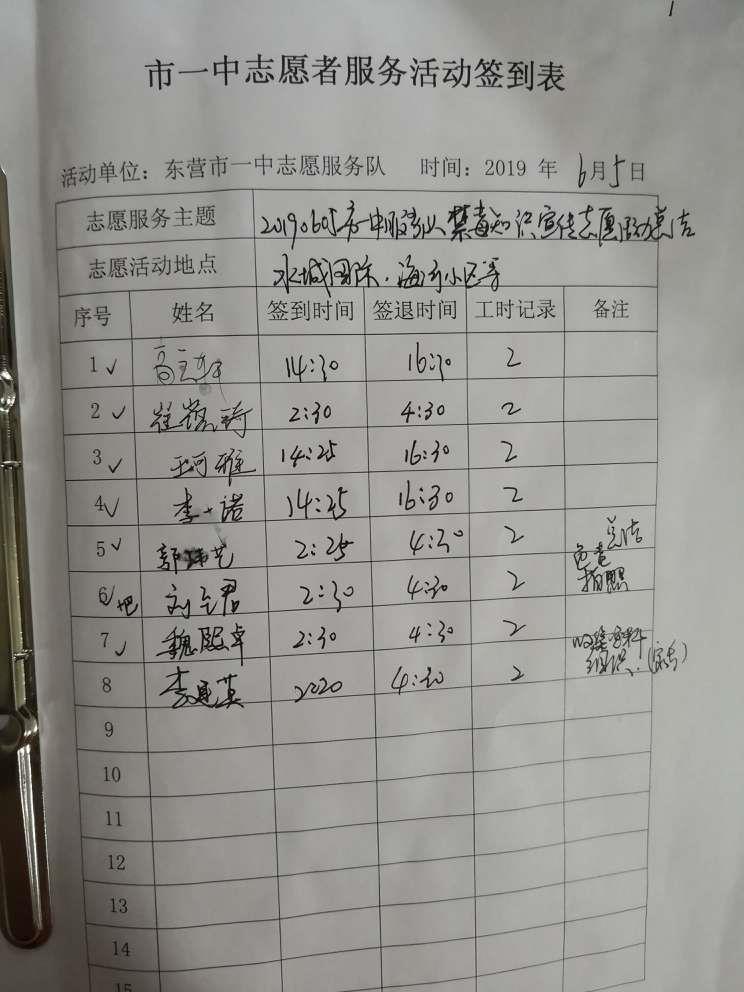 市一中志愿者服务活动签到表
活动单位：东营市一中志愿服务队 时间：2019 年 6月5日
志愿服务主题 20190605市一中 禁毒知识宣传志愿活动总结
志愿活动地点 水城国际·海河小区等
序号 姓名 签到时间 签退时间 工时记录 备注
1 ✓ 14:30 16:30 2
2 ✓ 2:30 4:30 2
3 ✓ 王珂雅 14:25 16:30 2
4 ✓ 李一诺 14:25 16:30 2
5 ✓ 2:25 4:30 2 总结
6 ✓ 刘 君 2:30 4:30 2 拍照
7 ✓ 魏熙卓 2:30 4:30 2
8 李 英 4:30 2 组织
9
10
11
12
13
14
15